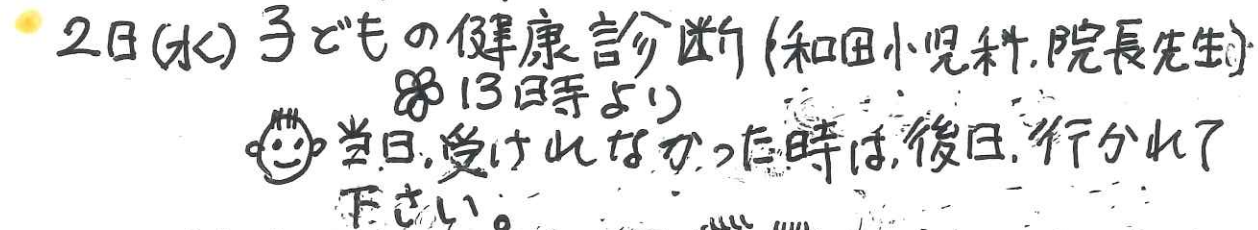 2日(水)子どもの健康診断(和田小児科.院長先生)
13時より
当日.受けれなかった時は.後日.行かれて
下さい。